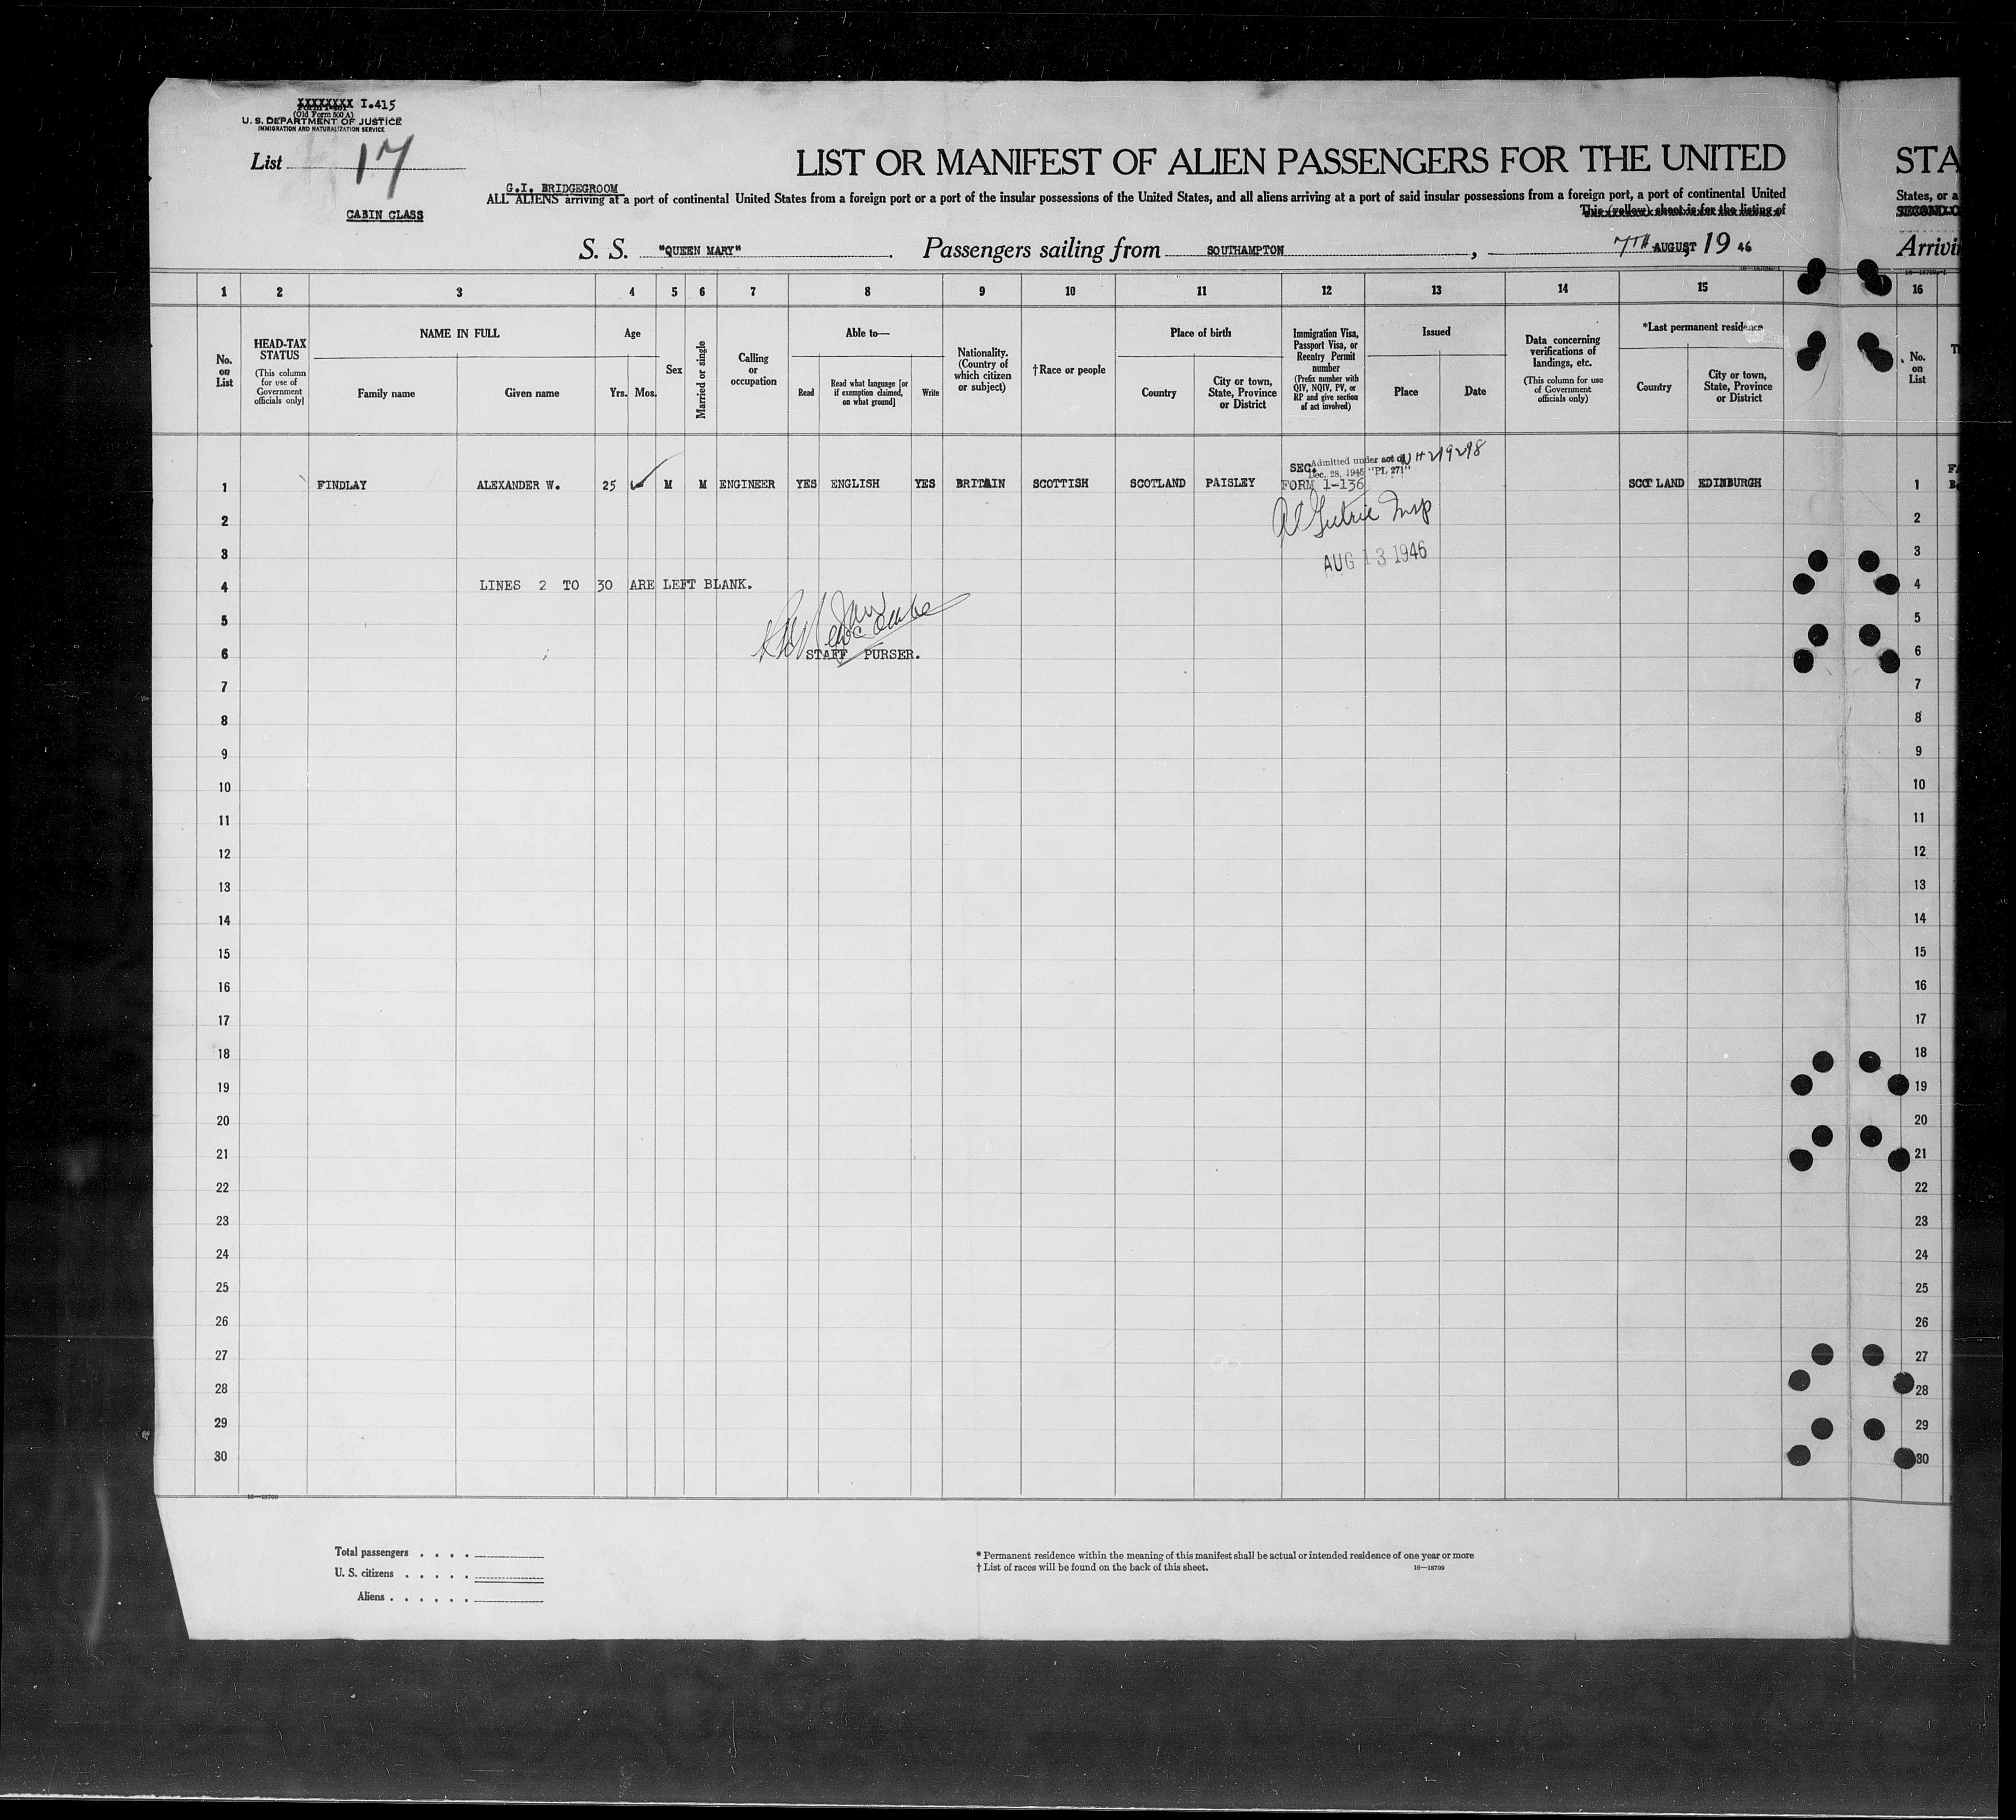 XXXXXXXX I.415
(Old Form 500 A)
U. S. DEPARTMENT OF JUSTICE
IMMIGRATION AND NATURALIZATION SERVICE
List 17
CABIN CLASS
LIST OR MANIFEST OF ALIEN PASSENGERS FOR THE UNITED STA
G.I. BRIDGEGROOM
ALL ALIENS arriving at a port of continental United States from a foreign port or a port of the insular possessions of the United States, and all aliens arriving at a port of said insular possessions from a foreign port, a port of continental United States, or a
This (yellow) sheet is for the listing of
S. S. "QUEEN MARY" Passengers sailing from SOUTHAMPTON, 7TH AUGUST, 19 46 Arrivi
1 2 3 4 5 6 7 8 9 10 11 12 13 14 15 16
No. on List
HEAD-TAX STATUS (This column for use of Government officials only)
NAME IN FULL
Family name Given name
Age
Yrs. Mos.
Sex
Married or single
Calling or occupation
Able to—
Read Read what language [or if exemption claimed, on what ground] Write
Nationality. (Country of which citizen or subject)
†Race or people
Place of birth
Country City or town, State, Province or District
Immigration Visa, Passport Visa, or Reentry Permit number (Prefix number with QIV, NQIV, PV, or RP and give section of act involved)
Issued
Place Date
Data concerning verifications of landings, etc. (This column for use of Government officials only)
*Last permanent residence
Country City or town, State, Province or District
No. on List
Admitted under act of
SEC. Dec. 28, 1945 "PL 271"
1 FINDLAY ALEXANDER W. 25 M M ENGINEER YES ENGLISH YES BRITAIN SCOTTISH SCOTLAND PAISLEY FORM 1-136 SCOTLAND EDINBURGH 1
2 2
AUG 13 1946
3 3
4 LINES 2 TO 30 ARE LEFT BLANK. 4
5 5
6 STAFF PURSER. 6
7 7
8 8
9 9
10 10
11 11
12 12
13 13
14 14
15 15
16 16
17 17
18 18
19 19
20 20
21 21
22 22
23 23
24 24
25 25
26 26
27 27
28 28
29 29
30 30
16—18709
Total passengers . . . .
U. S. citizens . . . . .
Aliens . . . . . .
* Permanent residence within the meaning of this manifest shall be actual or intended residence of one year or more
† List of races will be found on the back of this sheet. 16—18709